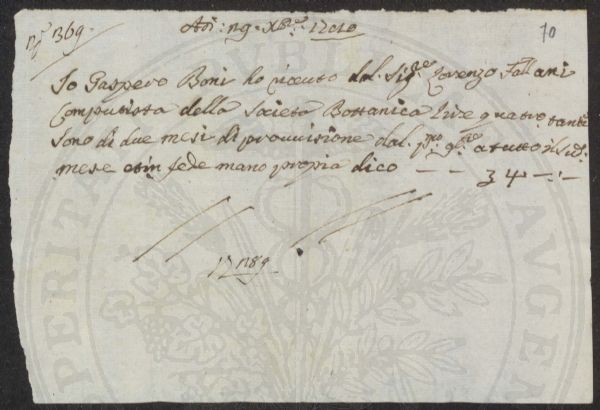 n.º 369. 70
Adi: 29. Xbre
Io Gaspero Boni ho riceuto dal Sigre Lorenzo Fallani
Computista della Società Bottanica Lire quatro tante
sono di due mesi di prouuisione dal pmo 9bre a tutto il sudº:
mese et in fede mano propria dico — — 4 —:—
PERITA PVBLI AVGEN